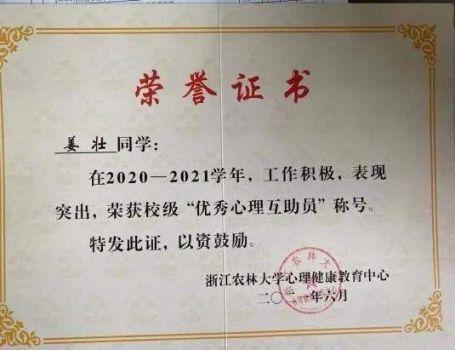 荣誉证书
姜壮同学：
在2020—2021学年，工作积极，表现
突出，荣获校级“优秀心理互助员”称号。
特发此证，以资鼓励。
浙江农林大学心理健康教育中心
二〇二一年六月